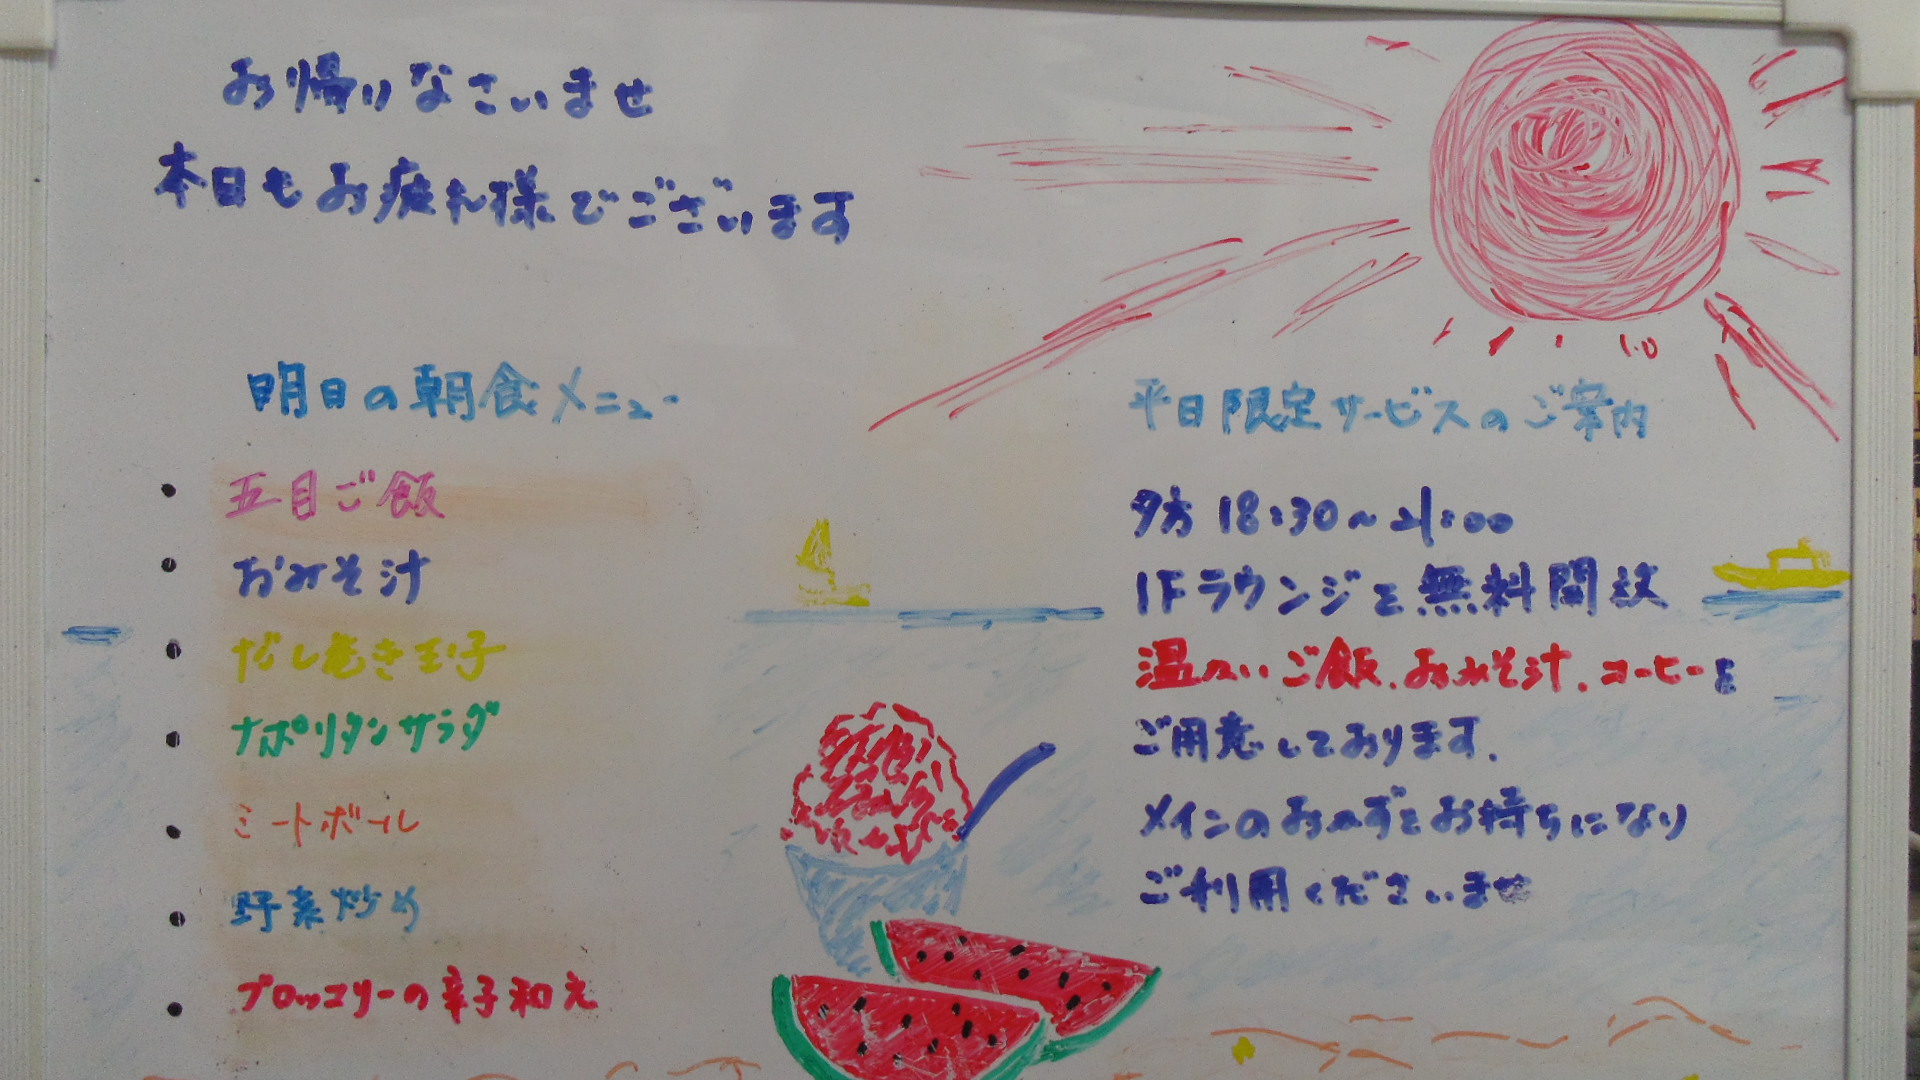 お帰りなさいませ
本日もお疲れ様でございます
明日の朝食メニュー
・五目ご飯
・おみそ汁
・だし巻き玉子
・ナポリタンサラダ
・ミートボール
・野菜炒め
・ブロッコリーの辛子和え
平日限定サービスのご案内
夕方 18:30~21:00
1Fラウンジを無料開放
温かいご飯、おみそ汁、コーヒーを
ご用意しております。
メインのおかずをお持ちになり
ご利用くださいませ